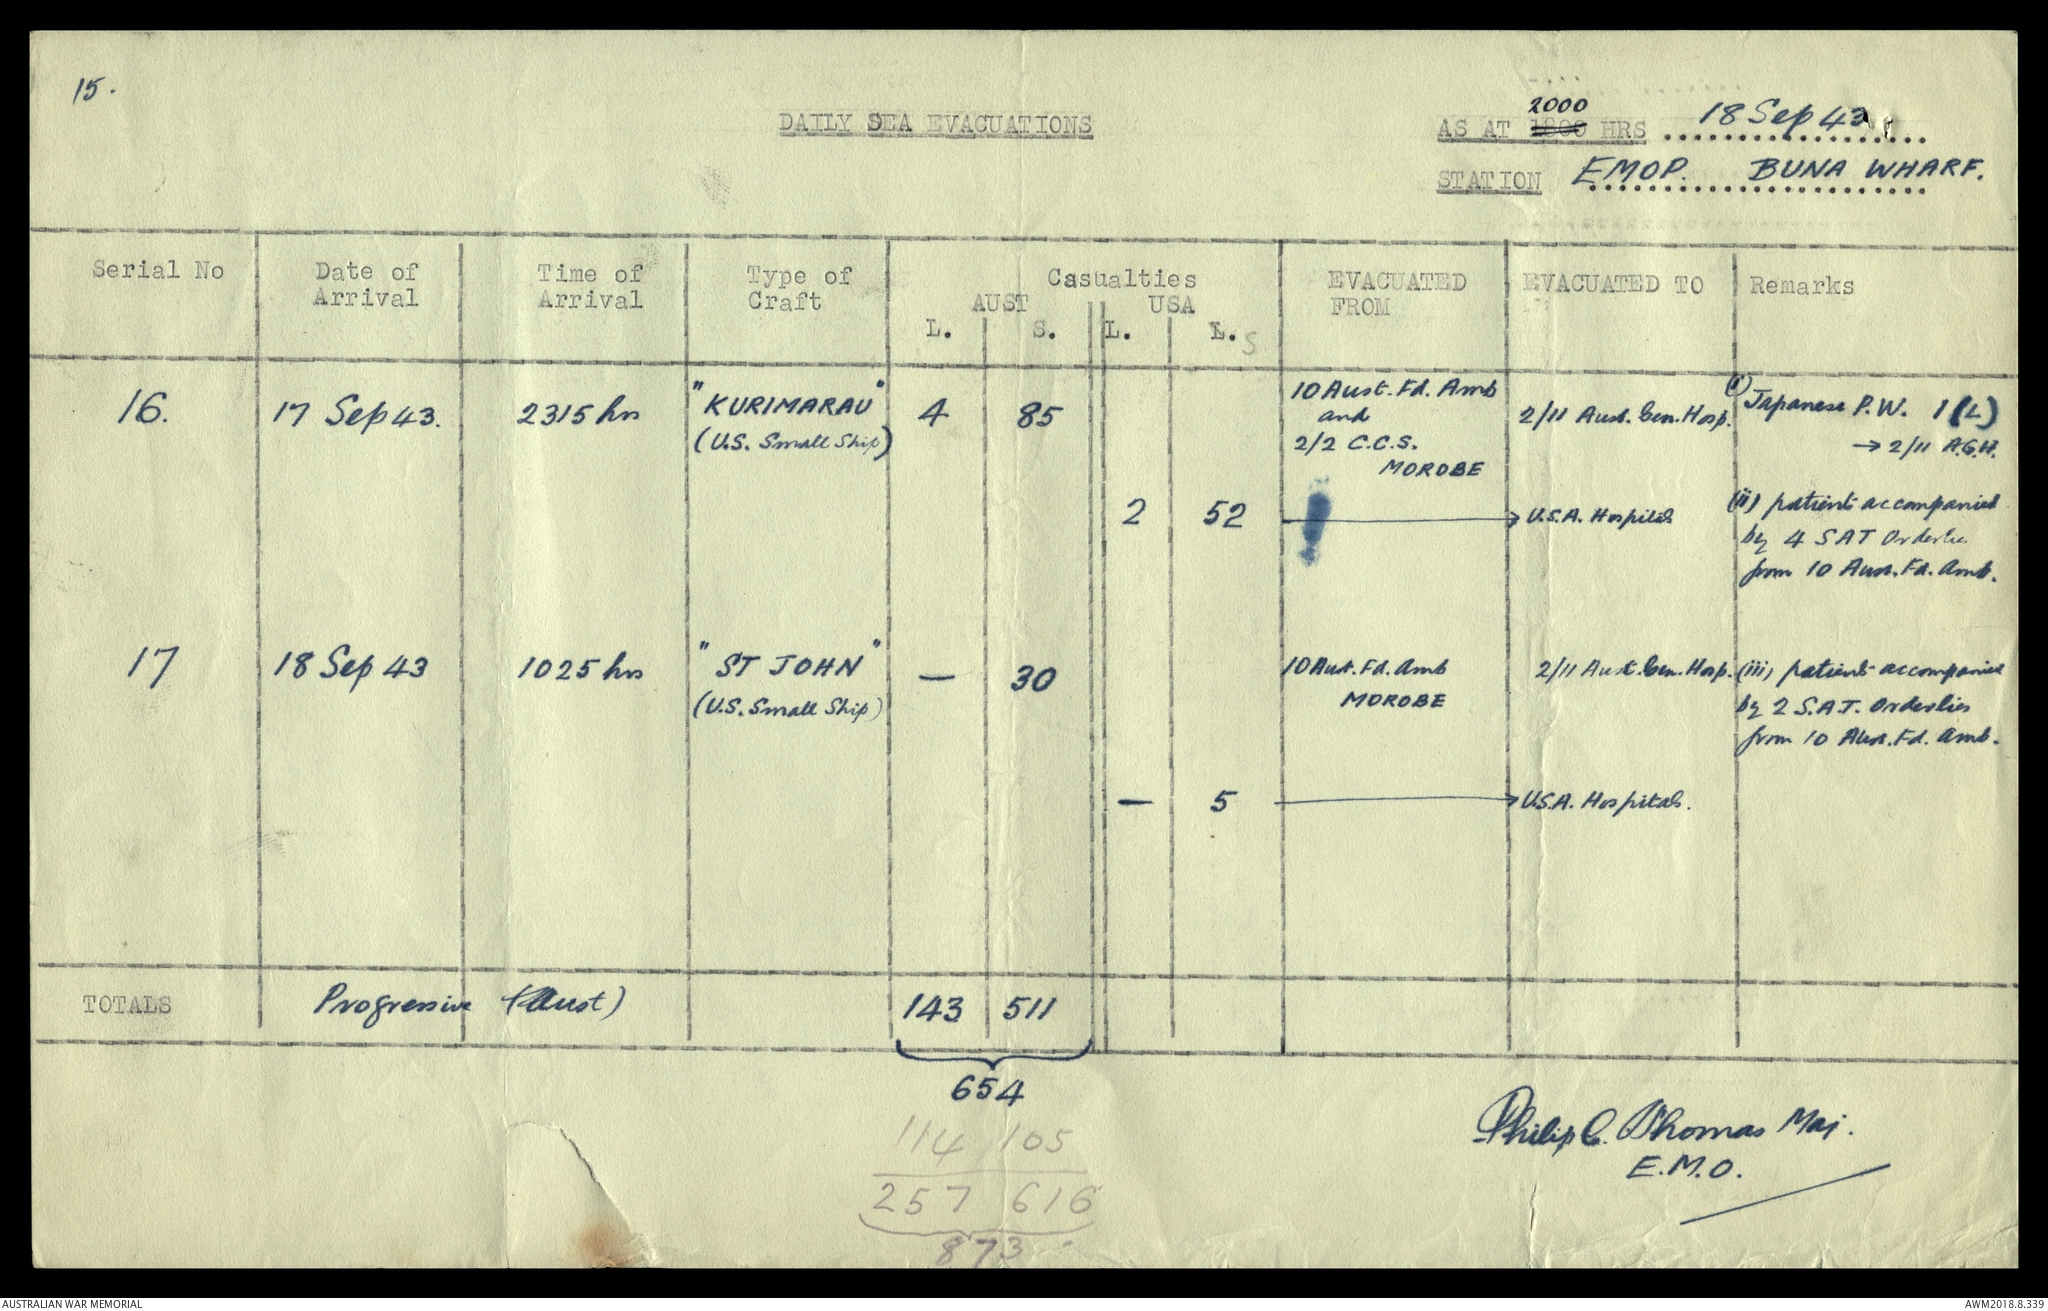 15.
DAILY SEA EVACUATIONS
2000
AS AT 1800 HRS 18 Sep 43
STATION EMOP. BUNA WHARF.
Serial No
Date of
Arrival
Time of
Arrival
Type of
Craft
Casualties
AUST USA
L. S. L. L. S
EVACUATED
FROM
EVACUATED TO
Remarks
16. 17 Sep 43. 2315 hrs "KURIMARAU"
(U.S. Small Ship)
4 85
10 Aust. Fd. Amb
and
2/2 C.C.S.
MOROBE
2/11 Aust. Gen. Hosp.
(i) Japanese P.W. 1 (L)
→ 2/11 A.G.H.
2 52 → U.S.A. Hospitals
(ii) patients accompanied
by 4 SAT Orderlies
from 10 Aust. Fd. Amb.
17 18 Sep 43 1025 hrs "ST JOHN"
(U.S. Small Ship)
— 30
10 Aust. Fd. Amb
MOROBE
2/11 Aust. Gen. Hosp.
(iii) patients accompanied
by 2 S.A.T. Orderlies
from 10 Aust. Fd. Amb.
— 5 → U.S.A. Hospitals.
TOTALS Progressive (Aust) 143 511
654
114 105
257 616
873
Philip C. Thomas Maj.
E.M.O.
AUSTRALIAN WAR MEMORIAL
AWM2018.8.339